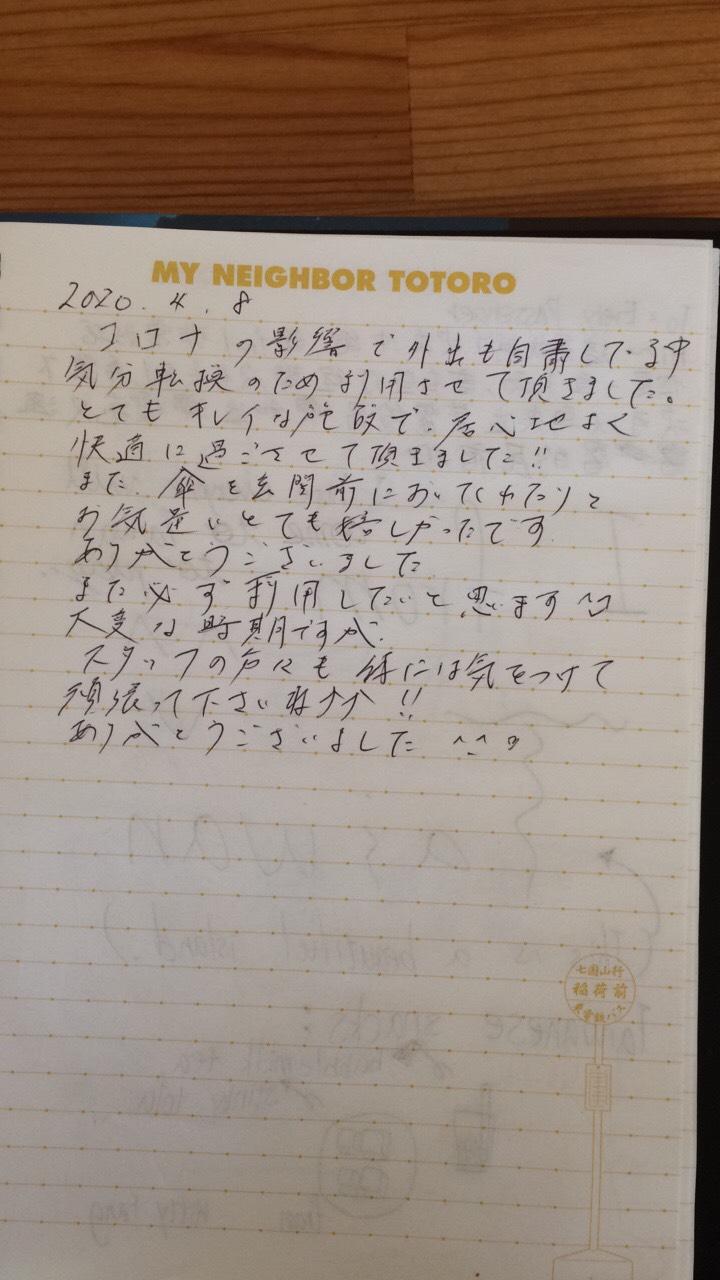 MY NEIGHBOR TOTORO
2020.4.8
コロナの影響で外出も自粛している中
気分転換のため利用させて頂きました。
とてもキレイな施設で、居心地よく
快適に過ごさせて頂きました!!
また、傘を玄関前においてくれたりと
お気遣いとても嬉しかったです
ありがとうございました
また必ず利用したいと思います
大変な時期ですが、
スタッフの方々も体には気をつけて
頑張って下さいね !!
ありがとうございました ^_^
七国山行
稲荷前
東電鉄バス